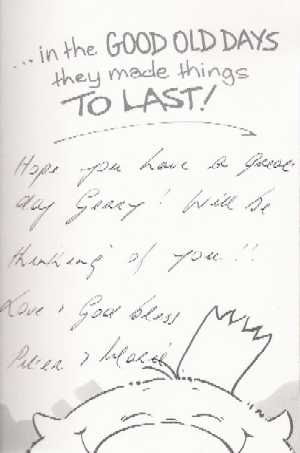 ...in the GOOD OLD DAYS
they made things
TO LAST!
Hope you have a great
day Geary! Will be
thinking of you!!
Love & God bless
Peter &